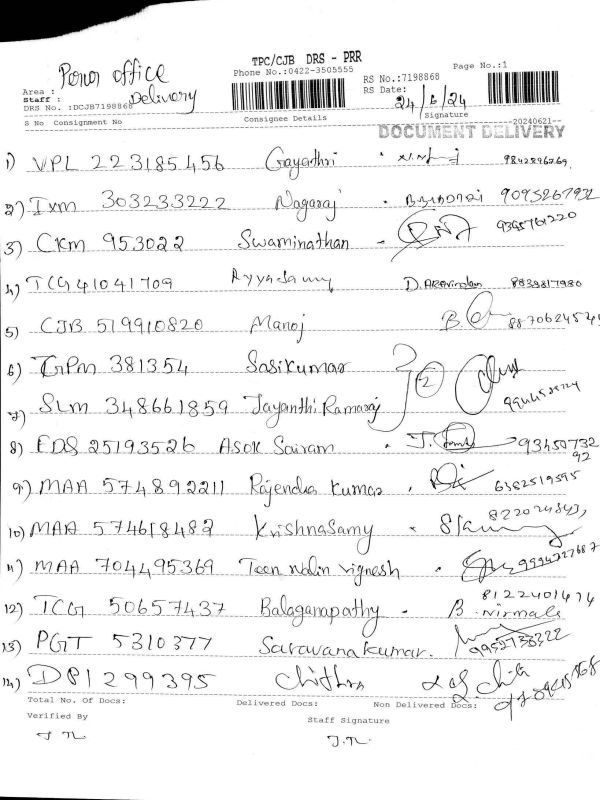 TPC/CJB DRS - PRR
Phone No.:0422-3505555
Page No.:1
RS No.:7198868
RS Date:
24/6/24
Area : Poror office
Staff : Delivery
DRS No. :DCJB7198868
Signature
S No Consignment No Consignee Details --20240621--
DOCUMENT DELIVERY
1) VPL 223185456 Gayathri 9842896769
2) Ixm 303233222 Nagaraj 9095267932
3) CKM 953022 Swaminathan - 9395761220
4) TCG 41041709 Ayyasamy D. Aravindan 8839817980
5) CJB 519910820 Manoj B. 8870624524
6) TGPM 381354 Sasikumar
7) SLM 348661859 Jayanthi Ramaraj
8) EDS 25193526 Asok Sairam J. 93450732
92
9) MAA 574892211 Rajendra Kumar 6382519595
10) MAA 574618482 Krishnasamy
11) MAA 704495369 Teen Nalin vignesh 9994727687
12) TCG 50657437 Balaganapathy - 8122401474
B. Nirmala
13) PGT 5310377 Saravanakumar. 9952738322
14) DPI 299395 Chithra
Total No. Of Docs: Delivered Docs: Non Delivered Docs:
Verified By Staff Signature
J.R. J.R.